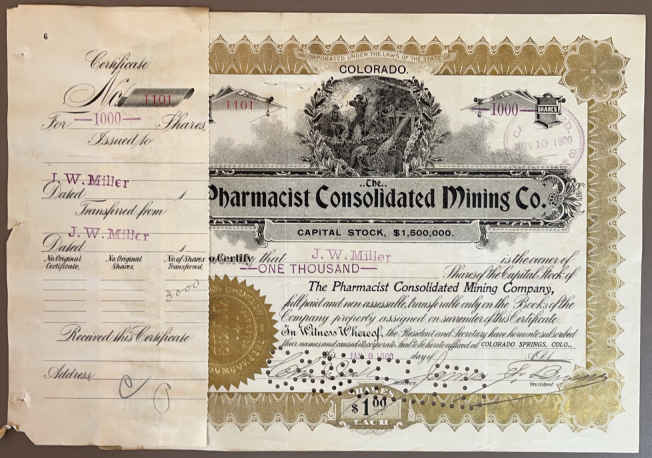 6
Certificate
No. 1101
For —1000— Shares,
Issued to
J. W. Miller
Dated 1
Transferred from
J. W. Miller
Dated 1
No. Original Certificate.
No. Original Shares.
No. of Shares Transferred.
3000
Received this Certificate
Address
INCORPORATED UNDER THE LAWS OF THE STATE
COLORADO.
1101
1000
SHARES
NOV 10 1900
..The..
Pharmacist Consolidated Mining Co.
CAPITAL STOCK, $1,500,000.
Certify that J. W. Miller is the owner of
—ONE THOUSAND— Shares of the Capital Stock of
The Pharmacist Consolidated Mining Company,
full paid and non assessable, transferable only on the Books of the
Company, properly assigned on surrender of this Certificate.
In Witness Whereof, the President and Secretary have hereunto subscribed
their names and caused a corporate seal to be hereto affixed at COLORADO SPRINGS, COLO.,
day of
President
SHARES
$1.00
EACH